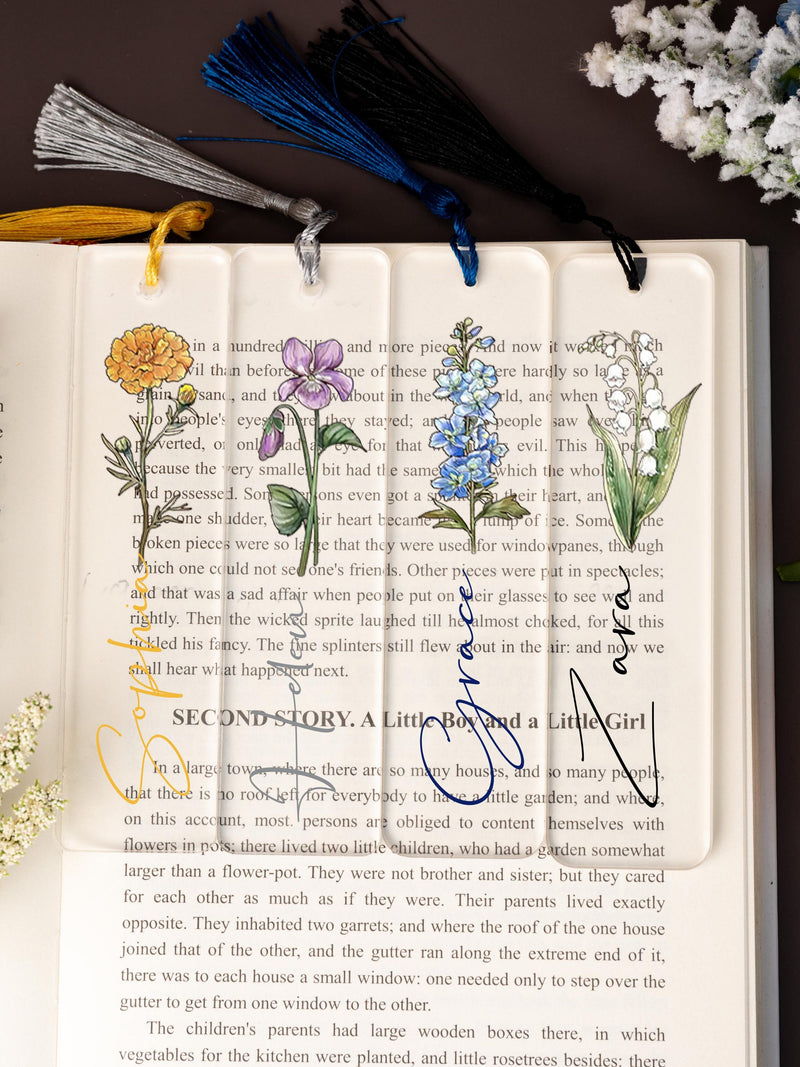 in a hundred and more pieces. And now it much
evil than before; some of these were hardly so large a
grain sand, and they about in the world, and when
into people's eyes, there they stayed; and people saw
perverted, or only had an eye for that evil. This
because the very smallest bit had the same which the whole
had possessed. Some persons even got a splinter in their heart, and
made one shudder, their heart became lump of ice. Some the
broken pieces were so large that they were used for windowpanes, through
which one could not see one's friends. Other pieces were put in spectacles;
and that was a sad affair when people put on their glasses to see well and
rightly. Then the wicked sprite laughed till he almost choked, for all this
tickled his fancy. The fine splinters still flew about in the air: and now we
shall hear what happened next.
SECOND STORY. A Little Boy and a Little Girl
In a large town, where there are so many houses, and so many people,
that there is no roof left for everybody to have a little garden; and where,
on this account, most persons are obliged to content themselves with
flowers in pots; there lived two little children, who had a garden somewhat
larger than a flower-pot. They were not brother and sister; but they cared
for each other as much as if they were. Their parents lived exactly
opposite. They inhabited two garrets; and where the roof of the one house
joined that of the other, and the gutter ran along the extreme end of it,
there was to each house a small window: one needed only to step over the
gutter to get from one window to the other.
The children's parents had large wooden boxes there, in which
vegetables for the kitchen were planted, and little rosetrees besides: there
Sophia
Helen
Grace
Zara